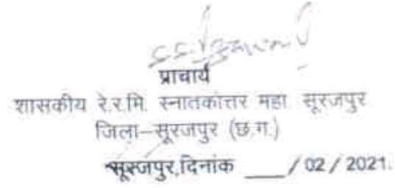 प्राचार्य
शासकीय रे.र.मि. स्नातकोत्तर महा. सूरजपुर
जिला–सूरजपुर (छ.ग.)
सूरजपुर,दिनांक ____/ 02 / 2021.